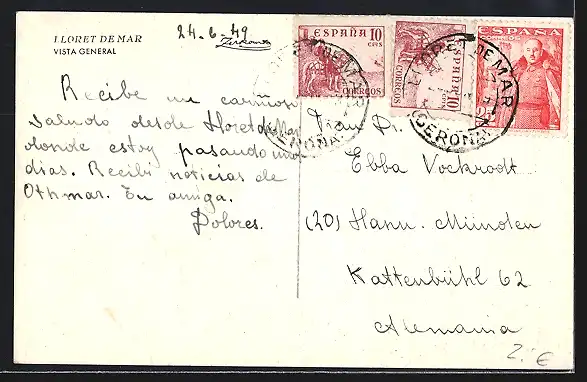 24-6-49
LLORET DE MAR
VISTA GENERAL
Zerkowitz
Recibe un cariñoso
saludo desde Lloret de Mar
donde estoy pasando unos
dias. Recibi noticias de
Othmar. Tu amiga.
Dolores.
ESPAÑA 10
CTS
CORREOS
ESPAÑA 10
CTS
CORREOS
ESPAÑA
CORREOS
25
LLORET DE MAR
(GERONA)
LLORET DE MAR
(GERONA)
Frau Dr.
Ebba Vockrodt
(20) Hann. Münden
Kattenbühl 62
Alemania
2.€